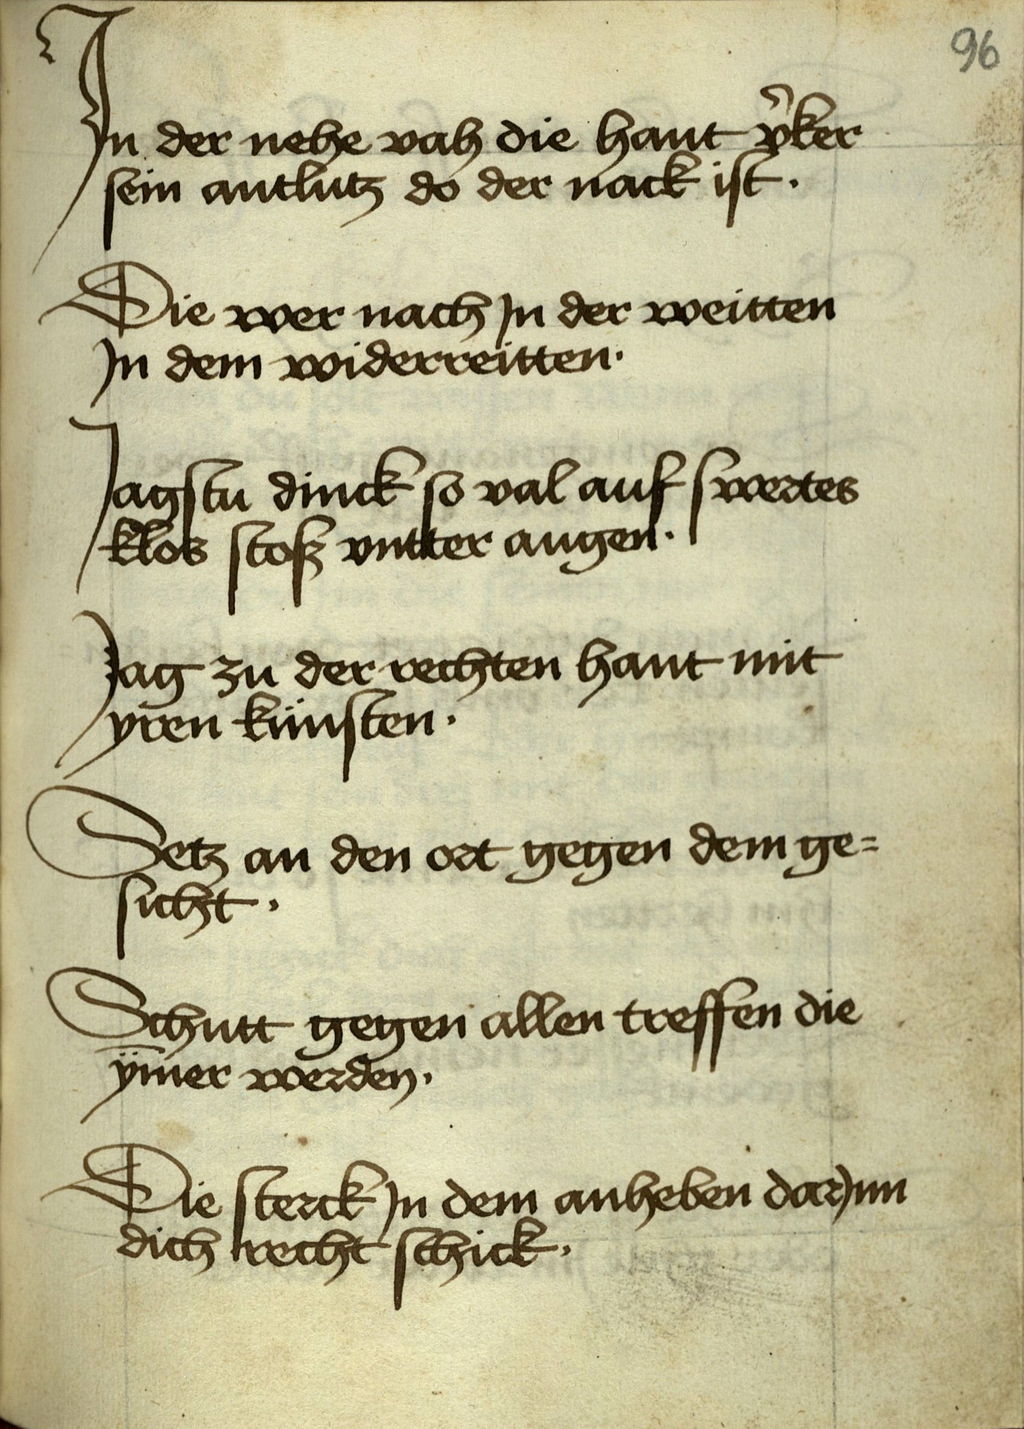 96
In der nehe vah die hant v̾ker
sein antlutz do der nack ist.
Die wer nach Jn der weitten
Jn dem widerreitten.
Jagstu dinck so val auf swertes
klos stosz vntter augen.
Jag zu der rechten hant mit
yren künsten.
Setz an den ort gegen dem ge=
sicht.
Schutt gegen allen treffen die
ÿm̅er werden.
Die sterck Jn dem anheben darJnn
dich recht schick.